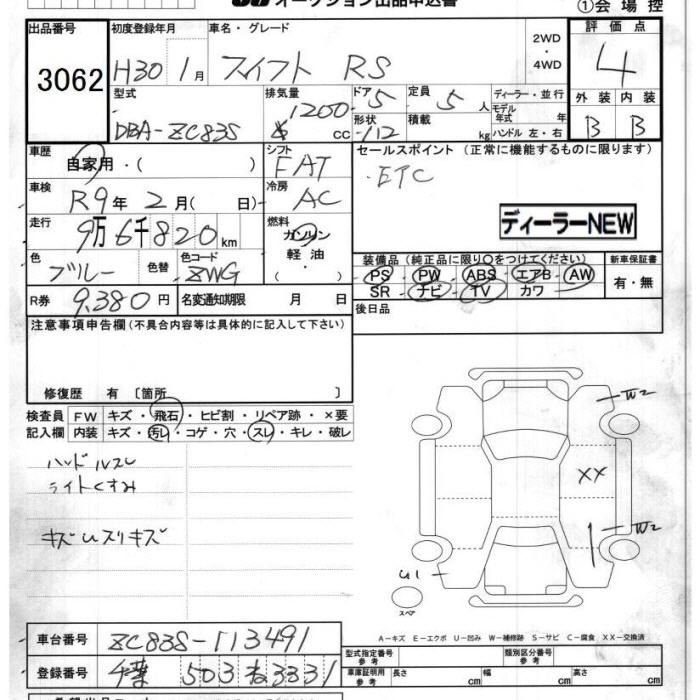 オークション出品申込書
①会場控
出品番号
3062
初度登録年月
H30 1月
車名・グレード
スイフト RS
2WD
・
4WD
評価点
4
型式
DBA-ZC83S
排気量
1200
cc
ドア
5
形状
112
定員
5人
積載
kg
ディーラー・並行
モデル年式 年
ハンドル 左・右
外装 内装
B B
車歴
自家用・( )
シフト
FAT
セールスポイント(正常に機能するものに限ります)
ETC
車検
R9年2月( 日)
冷房
AC
ディーラーNEW
走行
9万6千820km
燃料
ガソリン
軽油
・
色
ブルー
色替
色コード
ZWG
装備品(純正品に限り○をつけてください)
PS・PW・ABS・エアB・AW
SR・ナビ・TV・カワ
新車保証書
有・無
R券
9,380円
名変通知期限 月 日
後日品
注意事項申告欄(不具合内容等は具体的に記入して下さい)
修復歴 有 〔箇所 〕
検査員
記入欄
FW キズ・飛石・ヒビ割・リペア跡・×要
内装 キズ・汚レ・コゲ・穴・スレ・キレ・破レ
ハンドルスレ
ライトくすみ
キズUスリキズ
W2
XX
W2
U1
スペア
A-キズ E-エクボ U-凹み W-補修跡 S-サビ C-腐食 XX-交換済
車台番号
ZC83S-113491
登録番号
千葉 503 ね 3331
型式指定番号
参考
類別区分番号
参考
車庫証明用
参考
長さ cm
幅 cm
高さ cm